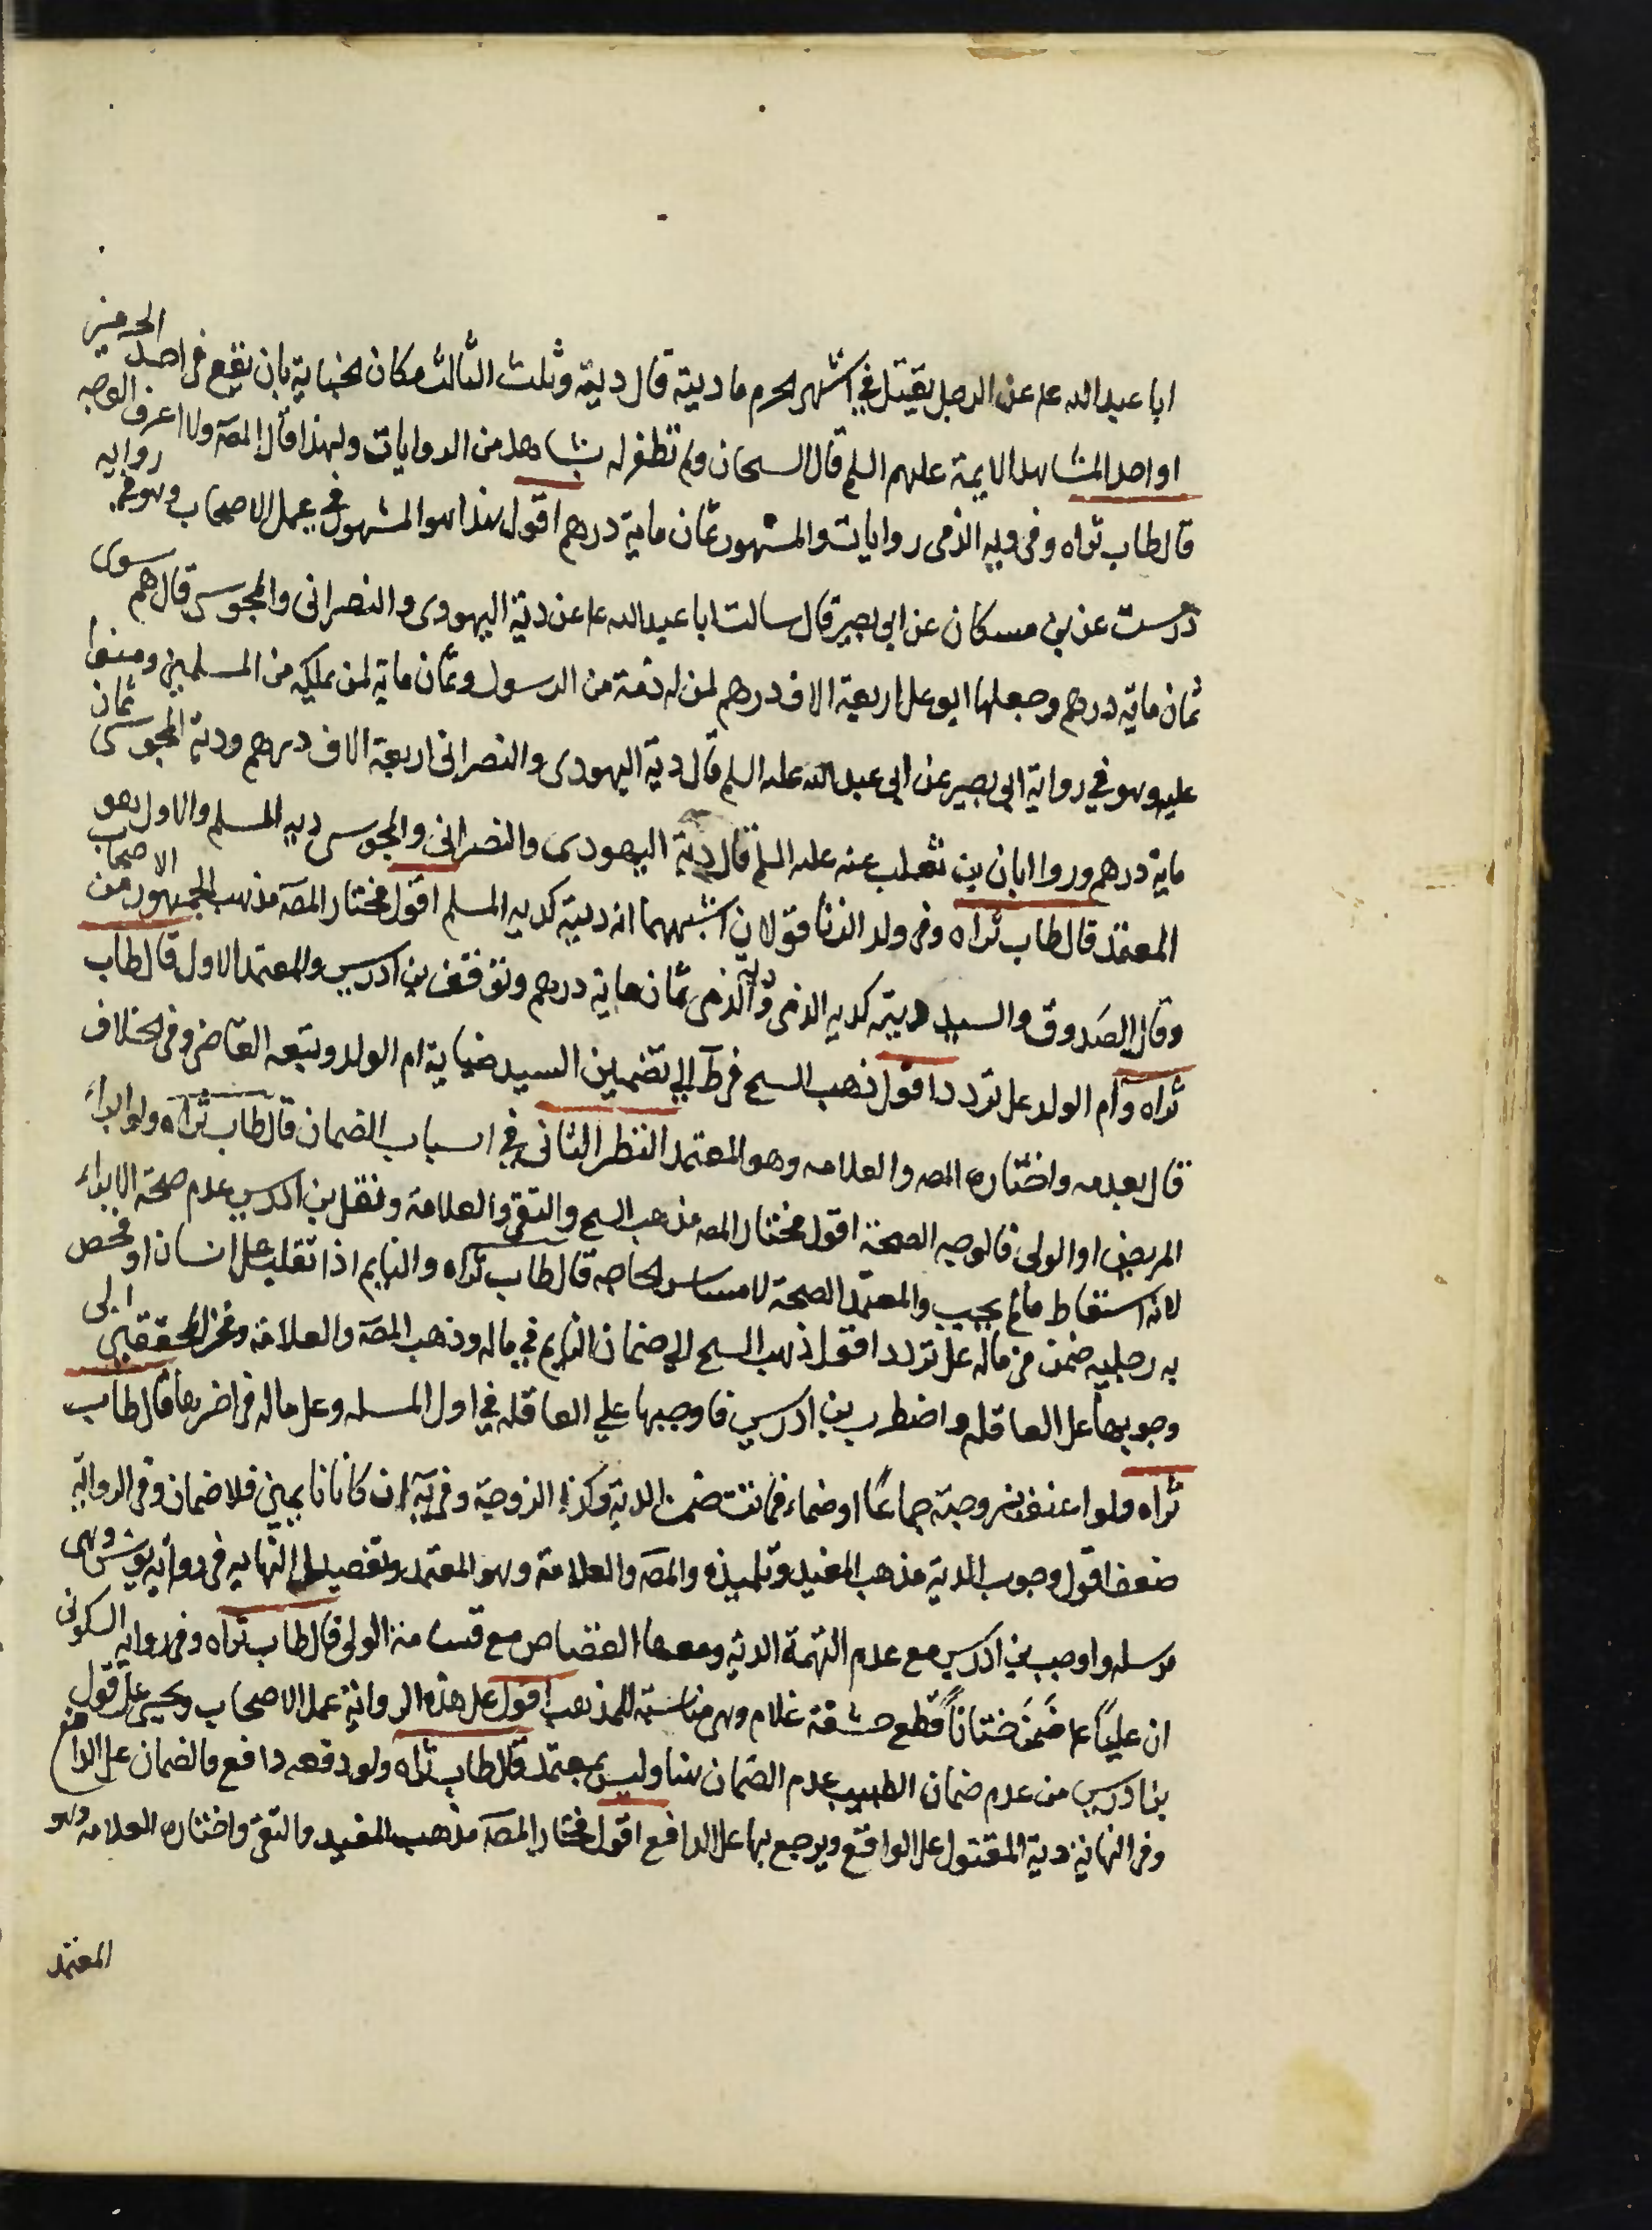 ابا عبد الله عم عن الرجل يقتل في اشهر الحرم ما ديته قال دية وثلث الثالث مكان الجناية بان يقع في احد الحرمين
او احد المشاهد الايمة عليهم السلم قال الشيخان ولم نظفر له بشاهد من الروايات ولهذا قال المصه ولا اعرف الوجه
قال طاب ثراه وفي ديه الذمي روايات والمشهور ثمان ماية درهم اقول هذا هو المشهور في عمل الاصحاب وهو في روايه
درست عن بن مسكان عن ابي بصير قال سالت ابا عبد الله عم عن دية اليهودي والنصراني والمجوسي قال هم سوى
ثمان ماية درهم وجعلها ابو على اربعة الاف درهم لمن له ذمة من الرسول وثمان ماية لمن ملكه من المسلمين ومنوا
عليه وهو في رواية ابي بصير عن ابي عبد الله عليه السلم قال دية اليهودي والنصراني اربعة الاف درهم ودية المجوسي ثمان
ماية درهم وروا ابان بن تغلب عنه عليه السلم قال دية اليهودي والنصراني والمجوسي ديه المسلم والاول هو
المعتمد قال طاب ثراه وفي ولد الزنا قولان اشبههما ان ديته كديه المسلم اقول مختار المصه مذهب الجمهور من الاصحاب
وقال الصدوق والسيد ديته كديه الذمي ودية الذمي ثمان ماية درهم وتوقف بن ادريس والمعتمد الاول قال طاب
ثراه وام الولد على تردد اقول ذهب الشيخ في ط الى تضمين السيد جناية ام الولد وتبعه القاضي وفي الخلاف
قال بعدمه واختاره المصه والعلامه وهو المعتمد النظر الثاني في اسباب الضمان قال طاب ثراه ولو ابراء
المريض او الولي فالوجه الصحة اقول مختار المصه مذهب الشيخ والتقي والعلامة ونقل بن ادريس عدم صحة الابراء
لانه اسقاط ما لم يجب والمعتمد الصحة لامساس الحاجه قال طاب ثراه والنايم اذا تقلب على انسان او فحص
به رجليه ضمن في ماله على تردد اقول ذهب الشيخ الى ضمان النايم في ماله وذهب المصه والعلامة وفخر المحققين الى
وجوبها على العاقله واضطرب بن ادريس فاوجبها على العاقله في اول المسله وعلى ماله في اخرها قال طاب
ثراه ولو اعنف بزوجته جماعًا او ضما فماتت ضمن الدية وكذا الزوجة وفي ية ان كانا مامونين فلا ضمان وفي الرواية
ضعف اقول وجوب الدية مذهب المفيد وتلميذه والمصه والعلامة وهو المعتمد وتفصيل النهايه في روايه يونس وهي
مرسله واوجب بن ادريس مع عدم التهمة الديه ومعها القصاص مع قسامة الولي قال طاب ثراه وفي روايه السكوني
ان عليًا عم ضمن ختانًا قطع حشفة غلام وهي مناسبة للمذهب اقول على هذه الرواية عمل الاصحاب ويجي على قول
بن ادريس من عدم ضمان الطبيب عدم الضمان هنا وليس بمعتمد قال طاب ثراه ولو دفعه دافع فالضمان على الدافع
وفي النهاية دية المقتول على الواقع ويرجع بها على الدافع اقول مختار المصه مذهب المفيد والتقي واختاره العلامه وهو
المعتمد